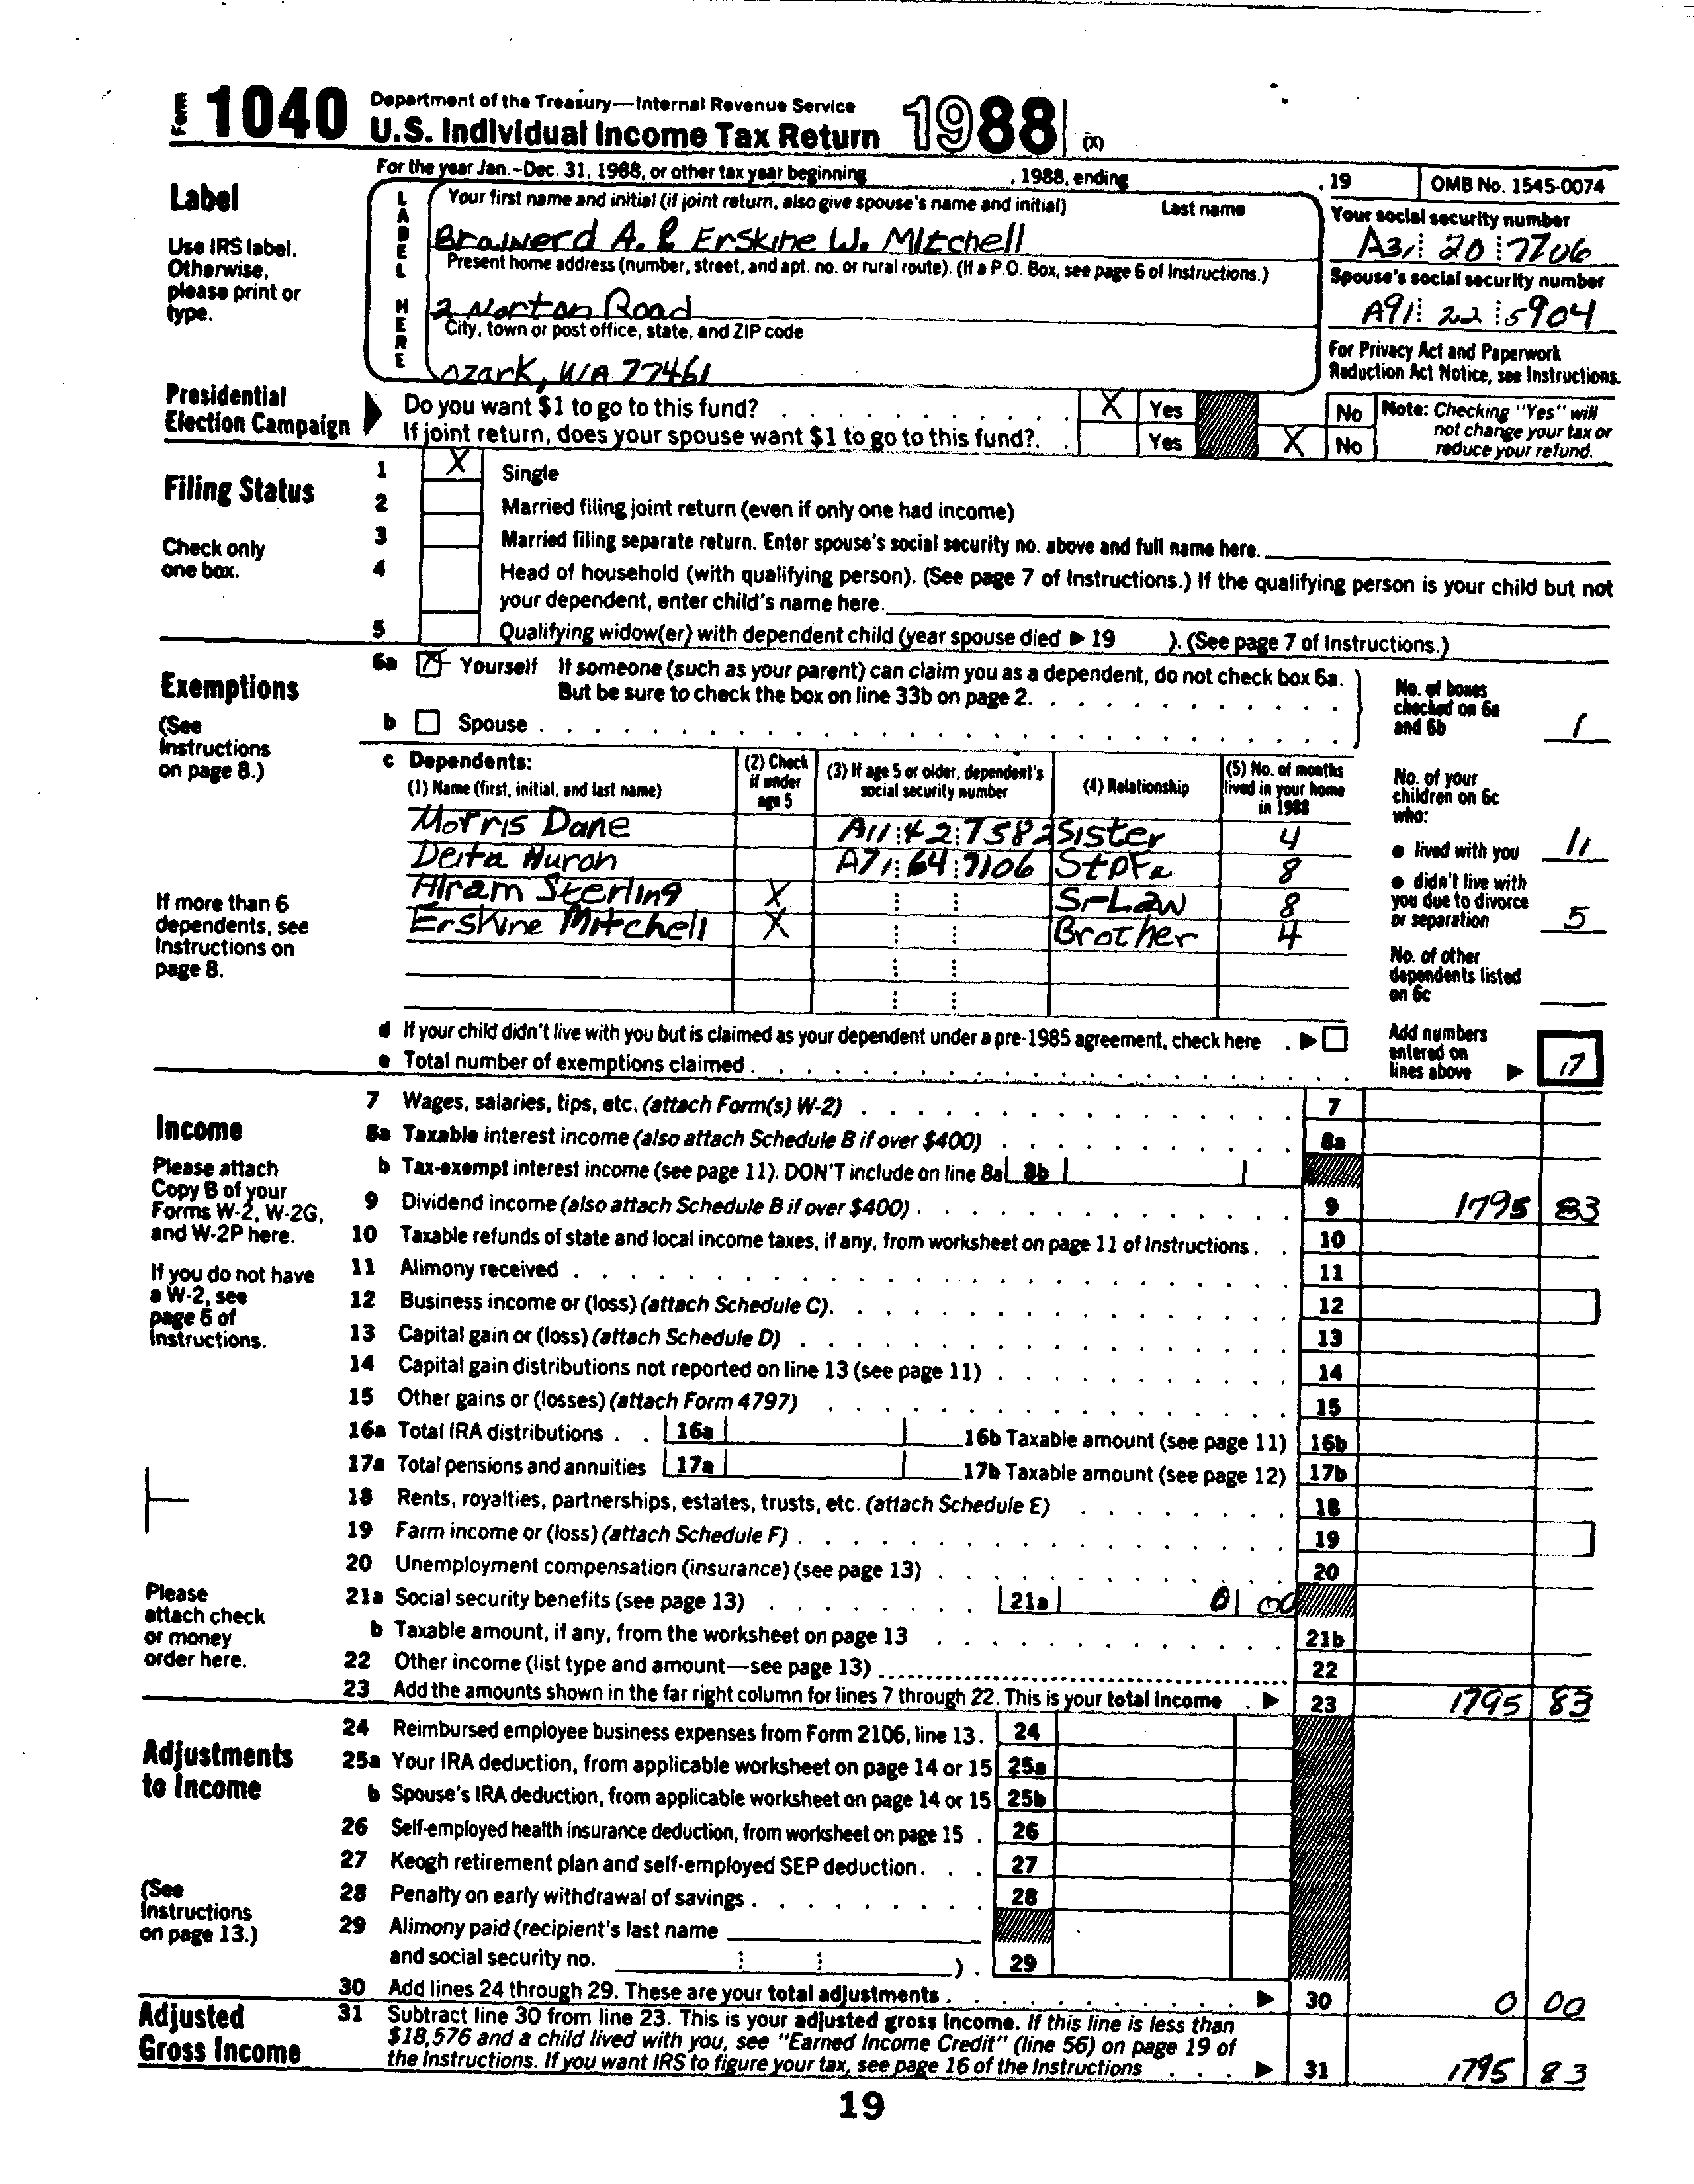 Form 1040 Department of the Treasury—Internal Revenue Service
U.S. Individual Income Tax Return 1988 (X)
For the year Jan.–Dec. 31, 1988, or other tax year beginning , 1988, ending , 19 OMB No. 1545-0074
Label
Use IRS label.
Otherwise,
please print or
type.
LABEL HERE
Your first name and initial (if joint return, also give spouse's name and initial) Last name
Brainerd A. & Erskine W. Mitchell
Present home address (number, street, and apt. no. or rural route). (If a P.O. Box, see page 6 of Instructions.)
2 Norton Road
City, town or post office, state, and ZIP code
Ozark, WA 77461
Your social security number
A31 20 7706
Spouse's social security number
A91 22 5904
For Privacy Act and Paperwork
Reduction Act Notice, see Instructions.
Presidential
Election Campaign
Do you want $1 to go to this fund? X Yes No
If joint return, does your spouse want $1 to go to this fund? Yes X No
Note: Checking "Yes" will
not change your tax or
reduce your refund.
Filing Status
Check only
one box.
1 X Single
2 Married filing joint return (even if only one had income)
3 Married filing separate return. Enter spouse's social security no. above and full name here.
4 Head of household (with qualifying person). (See page 7 of Instructions.) If the qualifying person is your child but not
your dependent, enter child's name here.
5 Qualifying widow(er) with dependent child (year spouse died ▶ 19 ). (See page 7 of Instructions.)
Exemptions
(See
Instructions
on page 8.)
If more than 6
dependents, see
Instructions on
page 8.
6a X Yourself If someone (such as your parent) can claim you as a dependent, do not check box 6a.
But be sure to check the box on line 33b on page 2.
b Spouse
No. of boxes
checked on 6a
and 6b 1
c Dependents:
(1) Name (first, initial, and last name) (2) Check if under age 5 (3) If age 5 or older, dependent's social security number (4) Relationship (5) No. of months lived in your home in 1988
Morris Dane A11 42 7582 Sister 4
Delta Huron A71 64 7106 StpFa 8
Hiram Sterling X Sr-Law 8
Erskine Mitchell X Brother 4
No. of your
children on 6c
who:
● lived with you 11
● didn't live with
you due to divorce
or separation 5
No. of other
dependents listed
on 6c
d If your child didn't live with you but is claimed as your dependent under a pre-1985 agreement, check here ▶
e Total number of exemptions claimed
Add numbers
entered on
lines above ▶ 17
Income
Please attach
Copy B of your
Forms W-2, W-2G,
and W-2P here.
If you do not have
a W-2, see
page 6 of
Instructions.
Please
attach check
or money
order here.
7 Wages, salaries, tips, etc. (attach Form(s) W-2) 7
8a Taxable interest income (also attach Schedule B if over $400) 8a
b Tax-exempt interest income (see page 11). DON'T include on line 8a 8b
9 Dividend income (also attach Schedule B if over $400) 9 1795 83
10 Taxable refunds of state and local income taxes, if any, from worksheet on page 11 of Instructions 10
11 Alimony received 11
12 Business income or (loss) (attach Schedule C) 12
13 Capital gain or (loss) (attach Schedule D) 13
14 Capital gain distributions not reported on line 13 (see page 11) 14
15 Other gains or (losses) (attach Form 4797) 15
16a Total IRA distributions 16a 16b Taxable amount (see page 11) 16b
17a Total pensions and annuities 17a 17b Taxable amount (see page 12) 17b
18 Rents, royalties, partnerships, estates, trusts, etc. (attach Schedule E) 18
19 Farm income or (loss) (attach Schedule F) 19
20 Unemployment compensation (insurance) (see page 13) 20
21a Social security benefits (see page 13) 21a 0 00
b Taxable amount, if any, from the worksheet on page 13 21b
22 Other income (list type and amount—see page 13) 22
23 Add the amounts shown in the far right column for lines 7 through 22. This is your total income ▶ 23 1795 83
Adjustments
to Income
(See
Instructions
on page 13.)
24 Reimbursed employee business expenses from Form 2106, line 13. 24
25a Your IRA deduction, from applicable worksheet on page 14 or 15 25a
b Spouse's IRA deduction, from applicable worksheet on page 14 or 15 25b
26 Self-employed health insurance deduction, from worksheet on page 15 26
27 Keogh retirement plan and self-employed SEP deduction 27
28 Penalty on early withdrawal of savings 28
29 Alimony paid (recipient's last name
and social security no. ) 29
30 Add lines 24 through 29. These are your total adjustments ▶ 30 0 00
Adjusted
Gross Income
31 Subtract line 30 from line 23. This is your adjusted gross income. If this line is less than
$18,576 and a child lived with you, see "Earned Income Credit" (line 56) on page 19 of
the Instructions. If you want IRS to figure your tax, see page 16 of the Instructions ▶ 31 1795 83
19